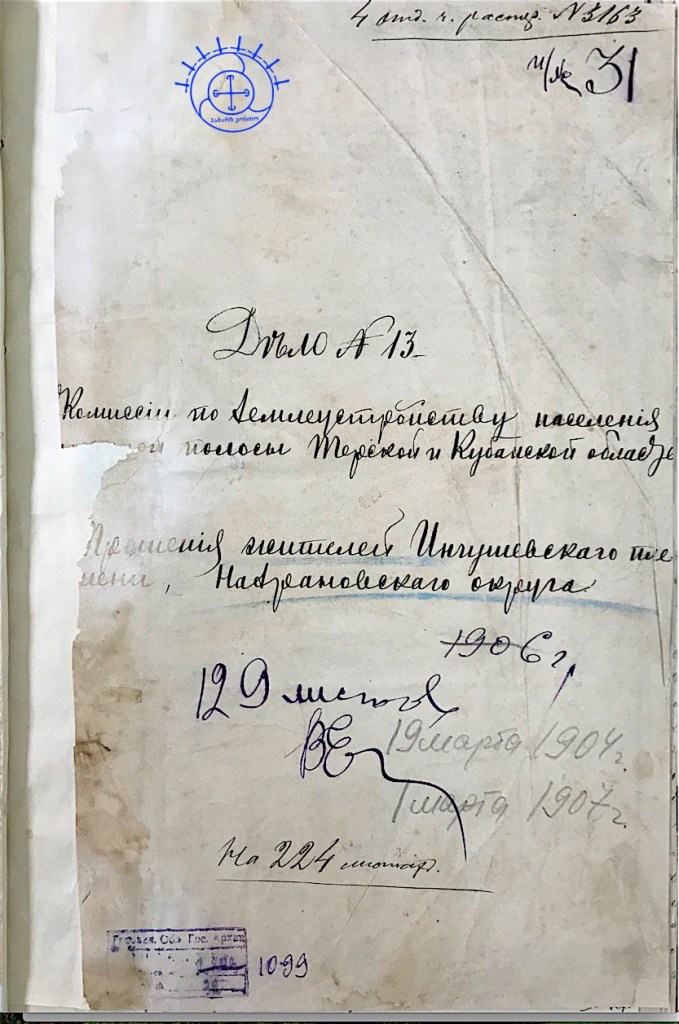 4 отд. ч. распор. № 3163
и/№ 31
Дѣло № 13
Комиссіи по Землеустройству населенія
полосы Терской и Кубанской
Прошенія жителей Ингушевскаго пле
мени, Назрановскаго округа
1906 г.
129 листов
ВЕ
19 марта 1904 г.
1 марта 1907 г.
На 224 листах.
Гос. Архив
1099